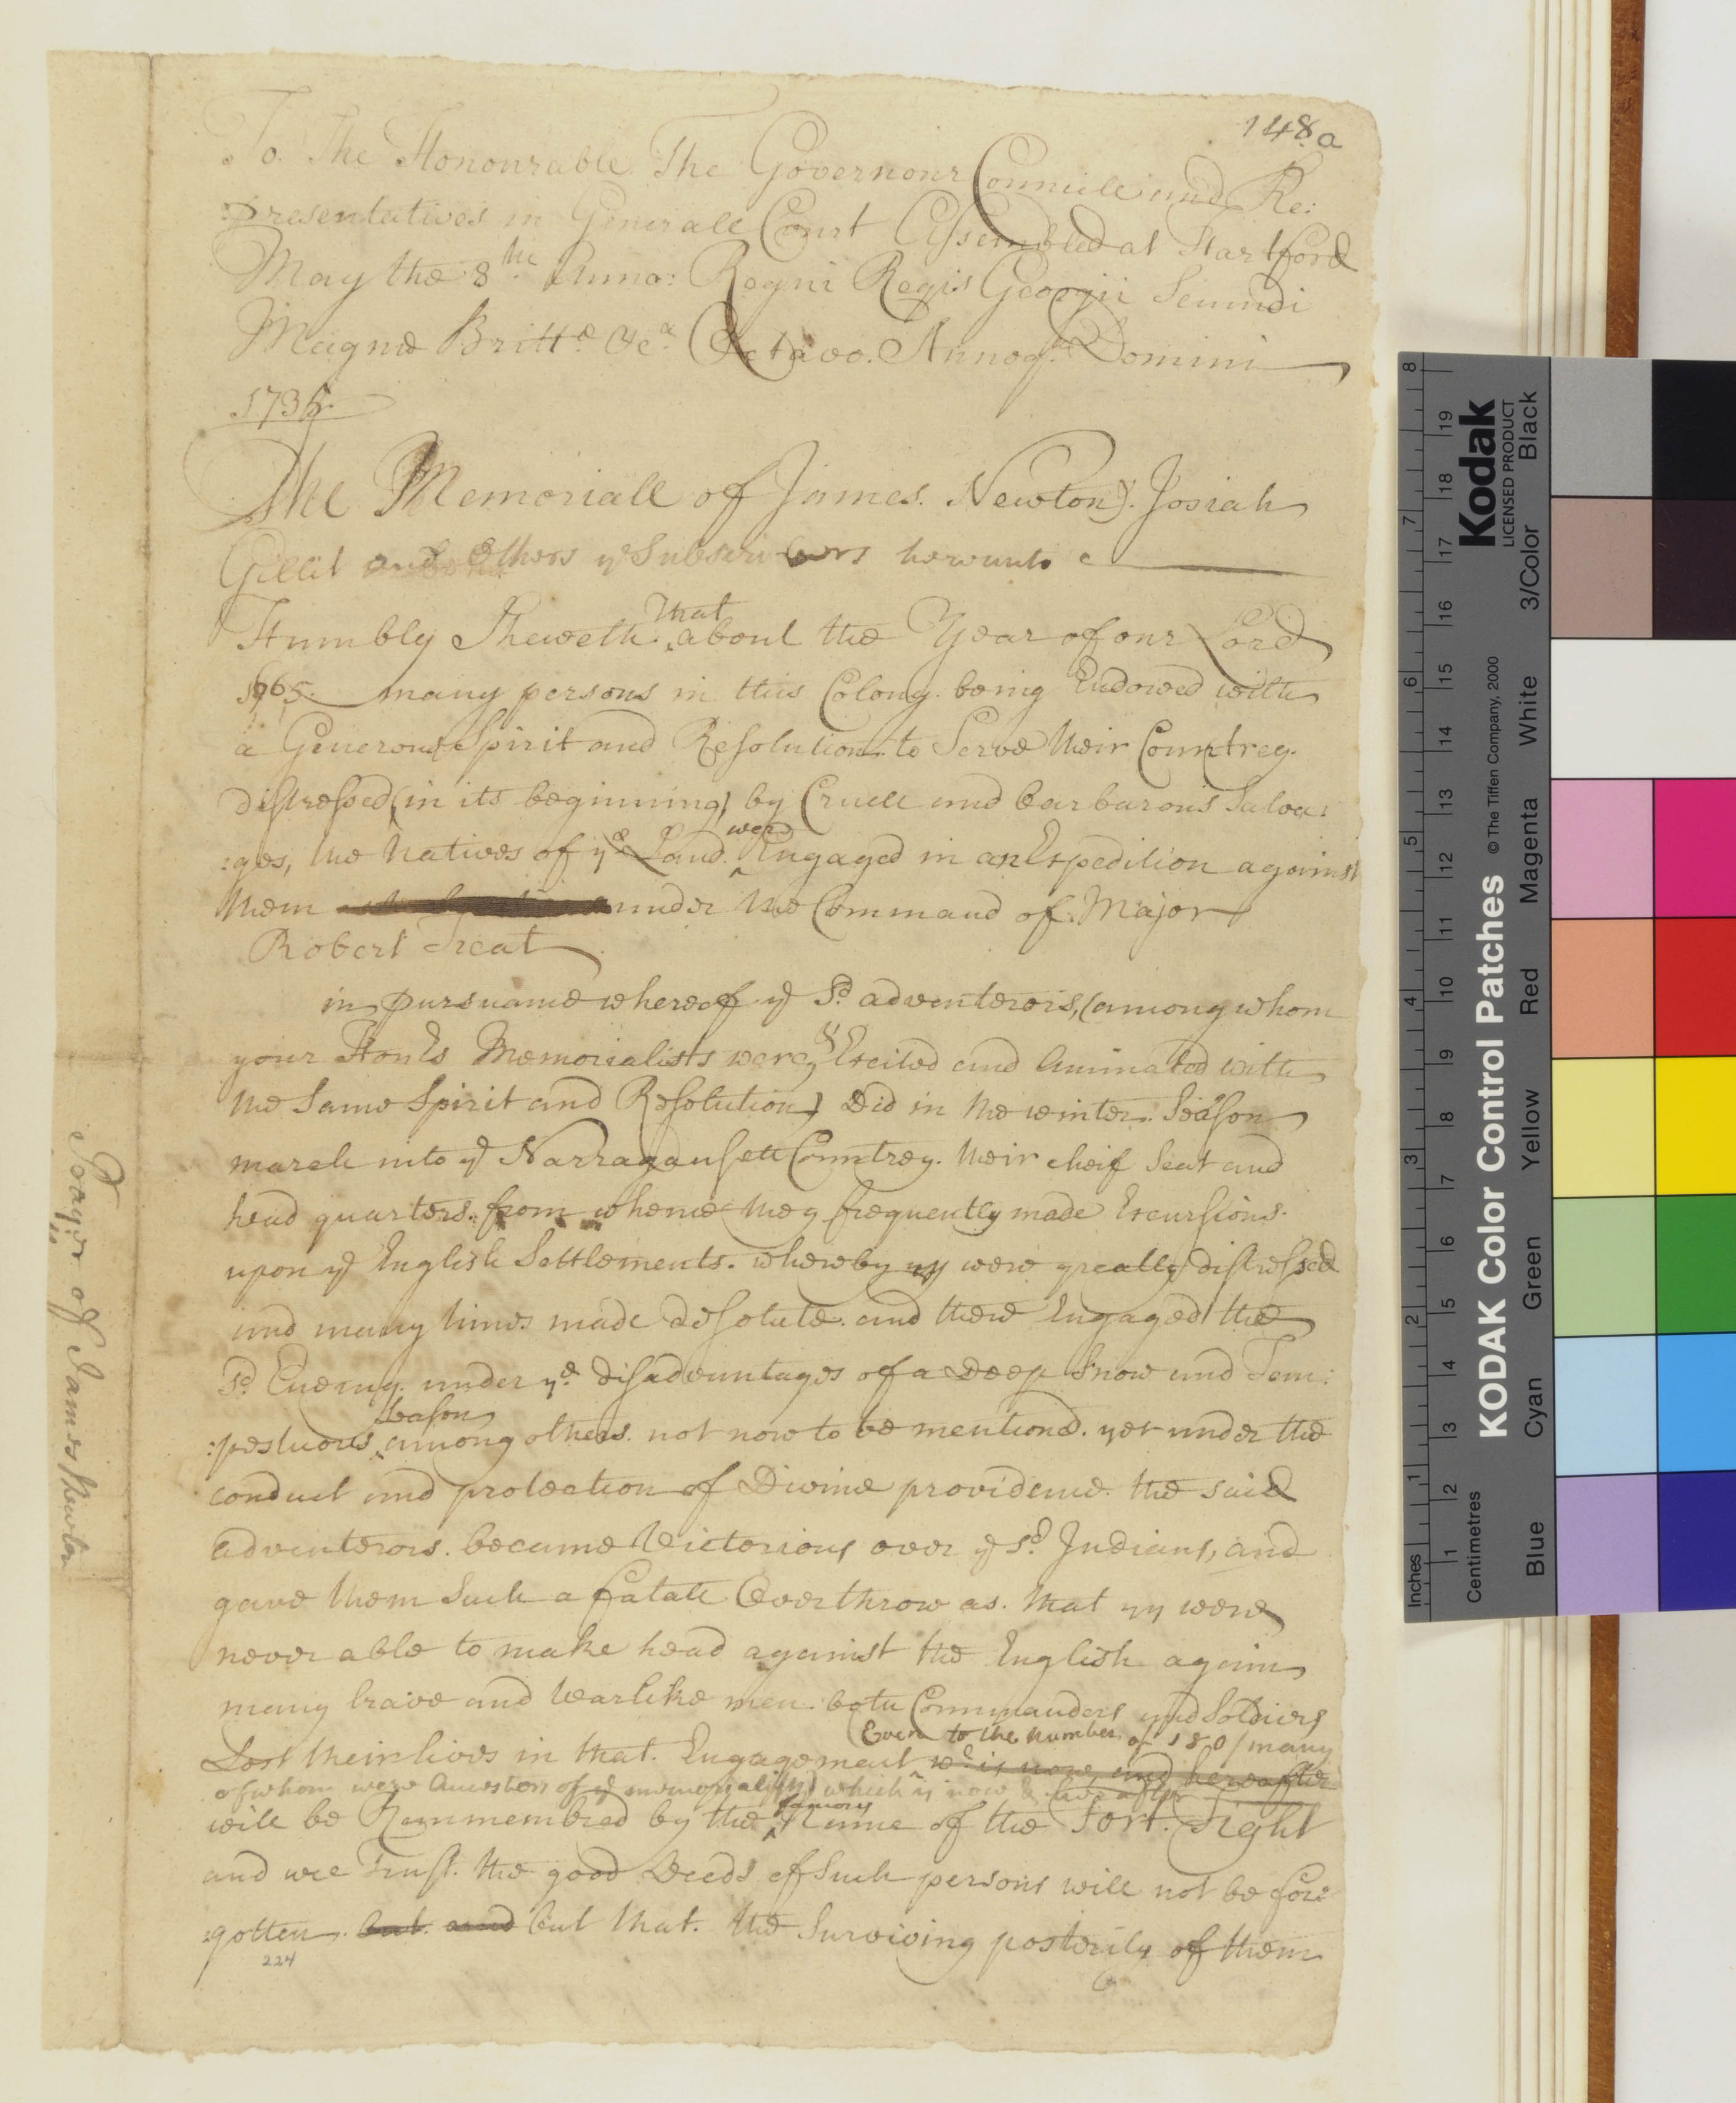 148a
To The Honourable The Governour Councile and Re:
:presentatives in Generall Court Assembled at Hartford
May the 8th Anno: Regni Regis Georgii Secundi
Magnæ Britte &ca Octavo. Annoq Domini
1735.
The Memoriall of James Newton. Josiah
Gillit and Others ye Subscribers hereunto
Humbly Sheweth That about the Year of our Lord
1665 many persons in this Colony. being Endowed with
a Generous Spirit and Resolution to Serve their Countrey.
distressed (in its beginning) by Cruell and barbarous Salva:
:ges, the Natives of ye Land. were Engaged in an Expedition against
them under the Command of Major
Robert Treat
in pursuance whereof ye Sd adventerors, (among whom
your Honrs Memorialists were Excited and Animated with
the Same Spirit and Resolution) Did in the winter Season
march into ye Narraganset Countrey. their cheif Seat and
head quarters. from whence they frequently made Excursions.
upon ye English Settlements. whereby yy were greatly distressed
and many times made desolate. and there Engaged the
Sd Enemy. under ye disadvantages of a Deep Snow and Tem:
:pestuous Season among others. not now to be mentiond. yet under the
conduct and protection of Divine providence. the said
adventerors. became Victorious over ye Sd Indians, and
gave them Such a fatall Overthrow as. that yy were
never able to make head against the English again
many brave and Warlike men. both Commanders and Soldiers
Lost their lives in that. Engagement Even to the number of 180/many wc is now and hereafter
of whom were Ancestors of ye memorialists) which is now & hereafter
will be Remmembred by the famous Name of the Fort. Fight
and wee Trust. the good Deeds of Such persons will not be for:
:gotten. but and but that. the Surviving posterity of them
224
Prayer of James Newton
8
7
6
5
4
3
2
1
Inches
19
18
17
16
15
14
13
12
11
10
9
8
7
6
5
4
3
2
1
Centimetres
Kodak
LICENSED PRODUCT
KODAK Color Control Patches © The Tiffen Company, 2000
Black
3/Color
White
Magenta
Red
Yellow
Green
Cyan
Blue